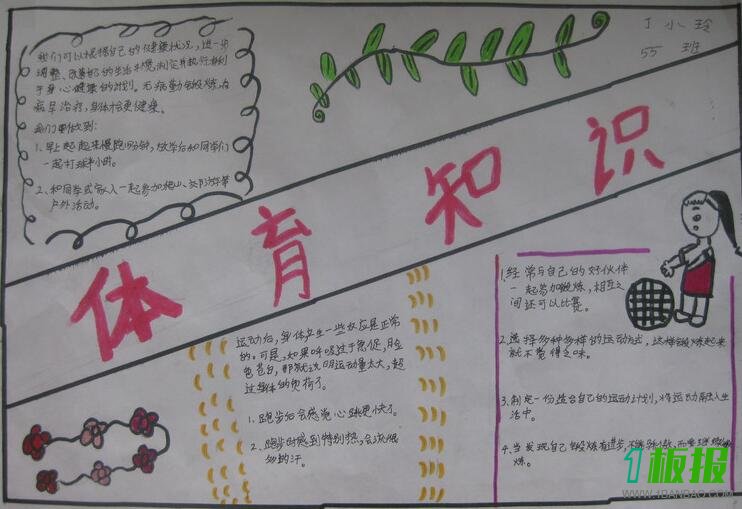 丁小玲
55 班
体育知识
我们可以根据自己的健康状况,进一步
调整、改善自己的生活环境,制定并执行有利
于身心健康的计划。无病勤锻炼,有
病早治疗,身体才会更健康。
我们要做到:
1、早上起起来慢跑10分钟,放学后和同学们
一起打球半小时。
2、和同学或家人一起参加爬山、郊游等
户外活动。
运动后,身体产生一些反应是正常
的。可是,如果呼吸过于急促,脸
色苍白,那就说明运动量太大,超
过身体的负荷了。
1、跑步后会感觉心跳更快了。
2、跑步时感到特别热,会流很
多的汗。
1、经常与自己的好伙伴
一起参加锻炼,相互之
间还可以比赛。
2、选择多种多样的运动方式,这样锻炼起来
就不觉得乏味。
3、制定一份适合自己的运动计划,将运动融入生
活中。
4、当发现自己锻炼有进步,不能骄傲,而要继续锻
炼。
1板报
WWW.1BANBAO.COM